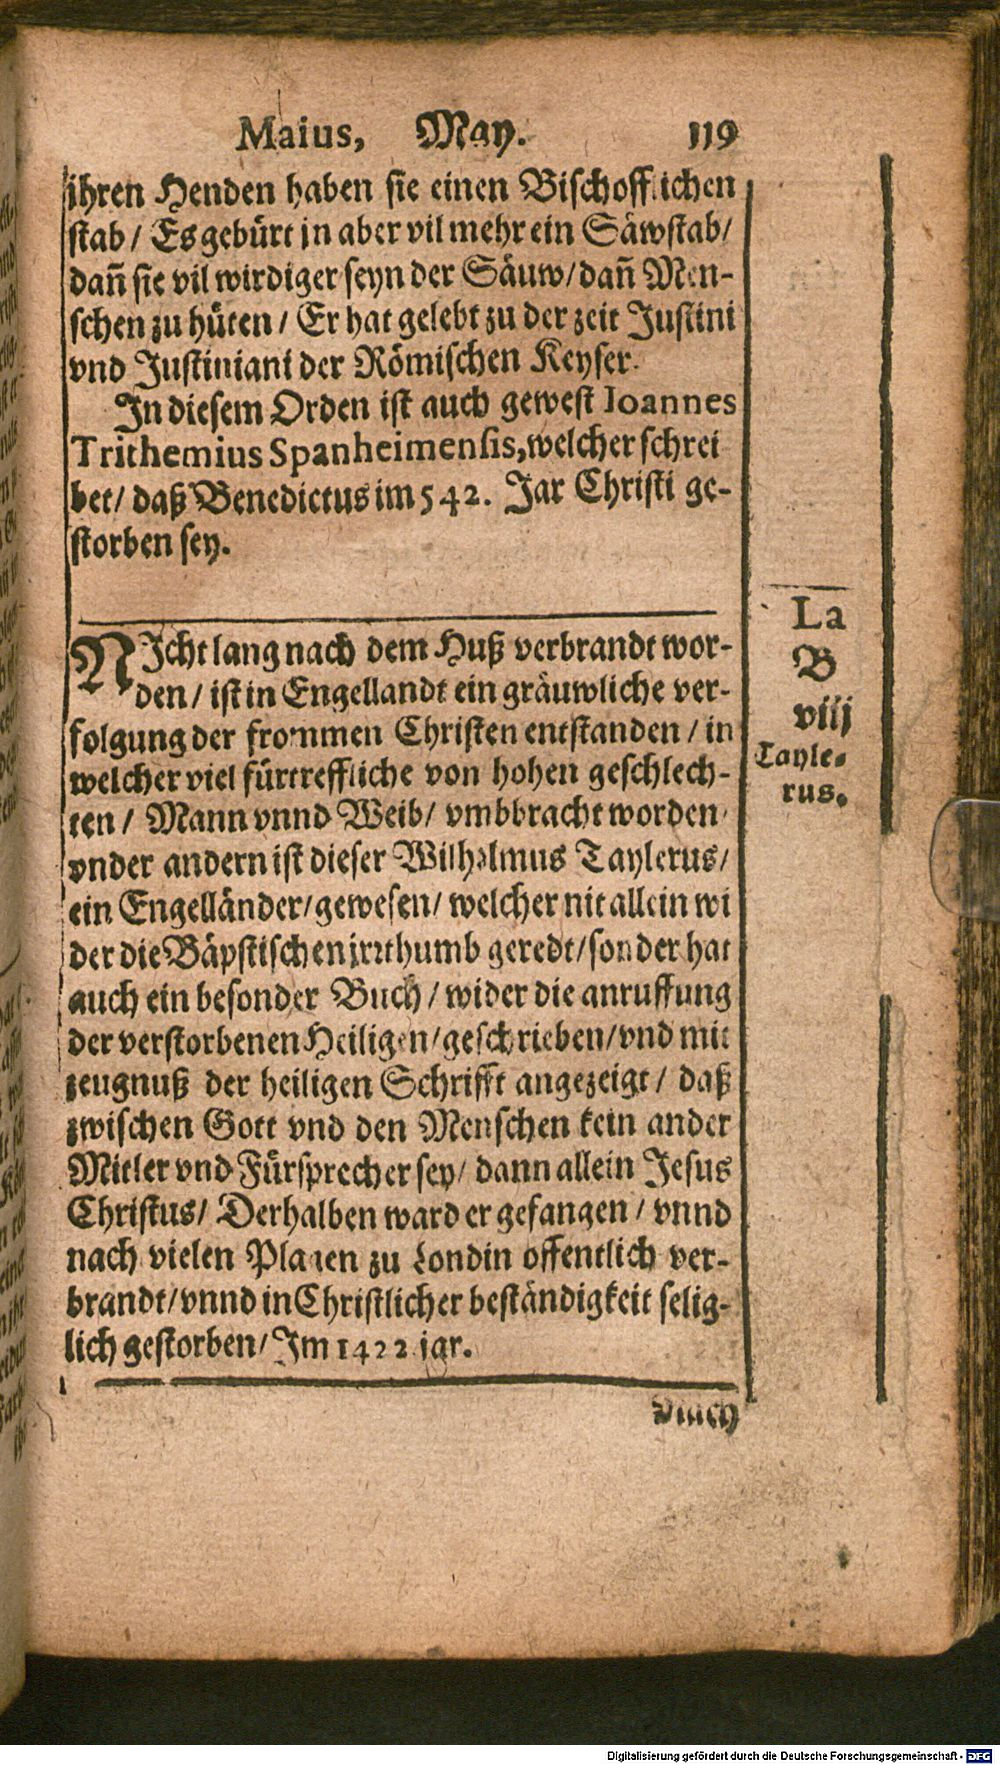 Maius, May. 119
ihren Henden haben sie einen Bischofflichen
stab / Es gebürt jn aber vil mehr ein Säwstab /
dañ sie vil wirdiger seyn der Säuw / dañ Men-
schen zu hüten / Er hat gelebt zu der zeit Justini
vnd Justiniani der Römischen Keyser.
In diesem Orden ist auch gewest Ioannes
Trithemius Spanheimensis, welcher schrei
bet / daß Benedictus im 542. Jar Christi ge-
storben sey.
NJcht lang nach dem Huß verbrandt wor-
den / ist in Engellandt ein gräuwliche ver-
folgung der frommen Christen entstanden / in
welcher viel fürtreffliche von hohen geschlech-
ten / Mann vnnd Weib / vmbbracht worden /
vnder andern ist dieser Wilhelmus Taylerus /
ein Engelländer / gewesen / welcher nit allein wi
der die Bäpstischen jrrthumb geredt / sonder hat
auch ein besonder Buch / wider die anruffung
der verstorbenen Heiligen / geschrieben / vnd mit
zeugnuß der heiligen Schrifft angezeigt / daß
zwischen Gott vnd den Menschen kein ander
Mitler vnd Fürsprecher sey / dann allein Jesus
Christus / Derhalben ward er gefangen / vnnd
nach vielen Plagen zu Londin offentlich ver-
brandt / vnnd in Christlicher beständigkeit selig-
lich gestorben / Jm 1422 jar.
La
B
viij
Tayle-
rus.
Digitalisierung gefördert durch die Deutsche Forschungsgemeinschaft - DFG